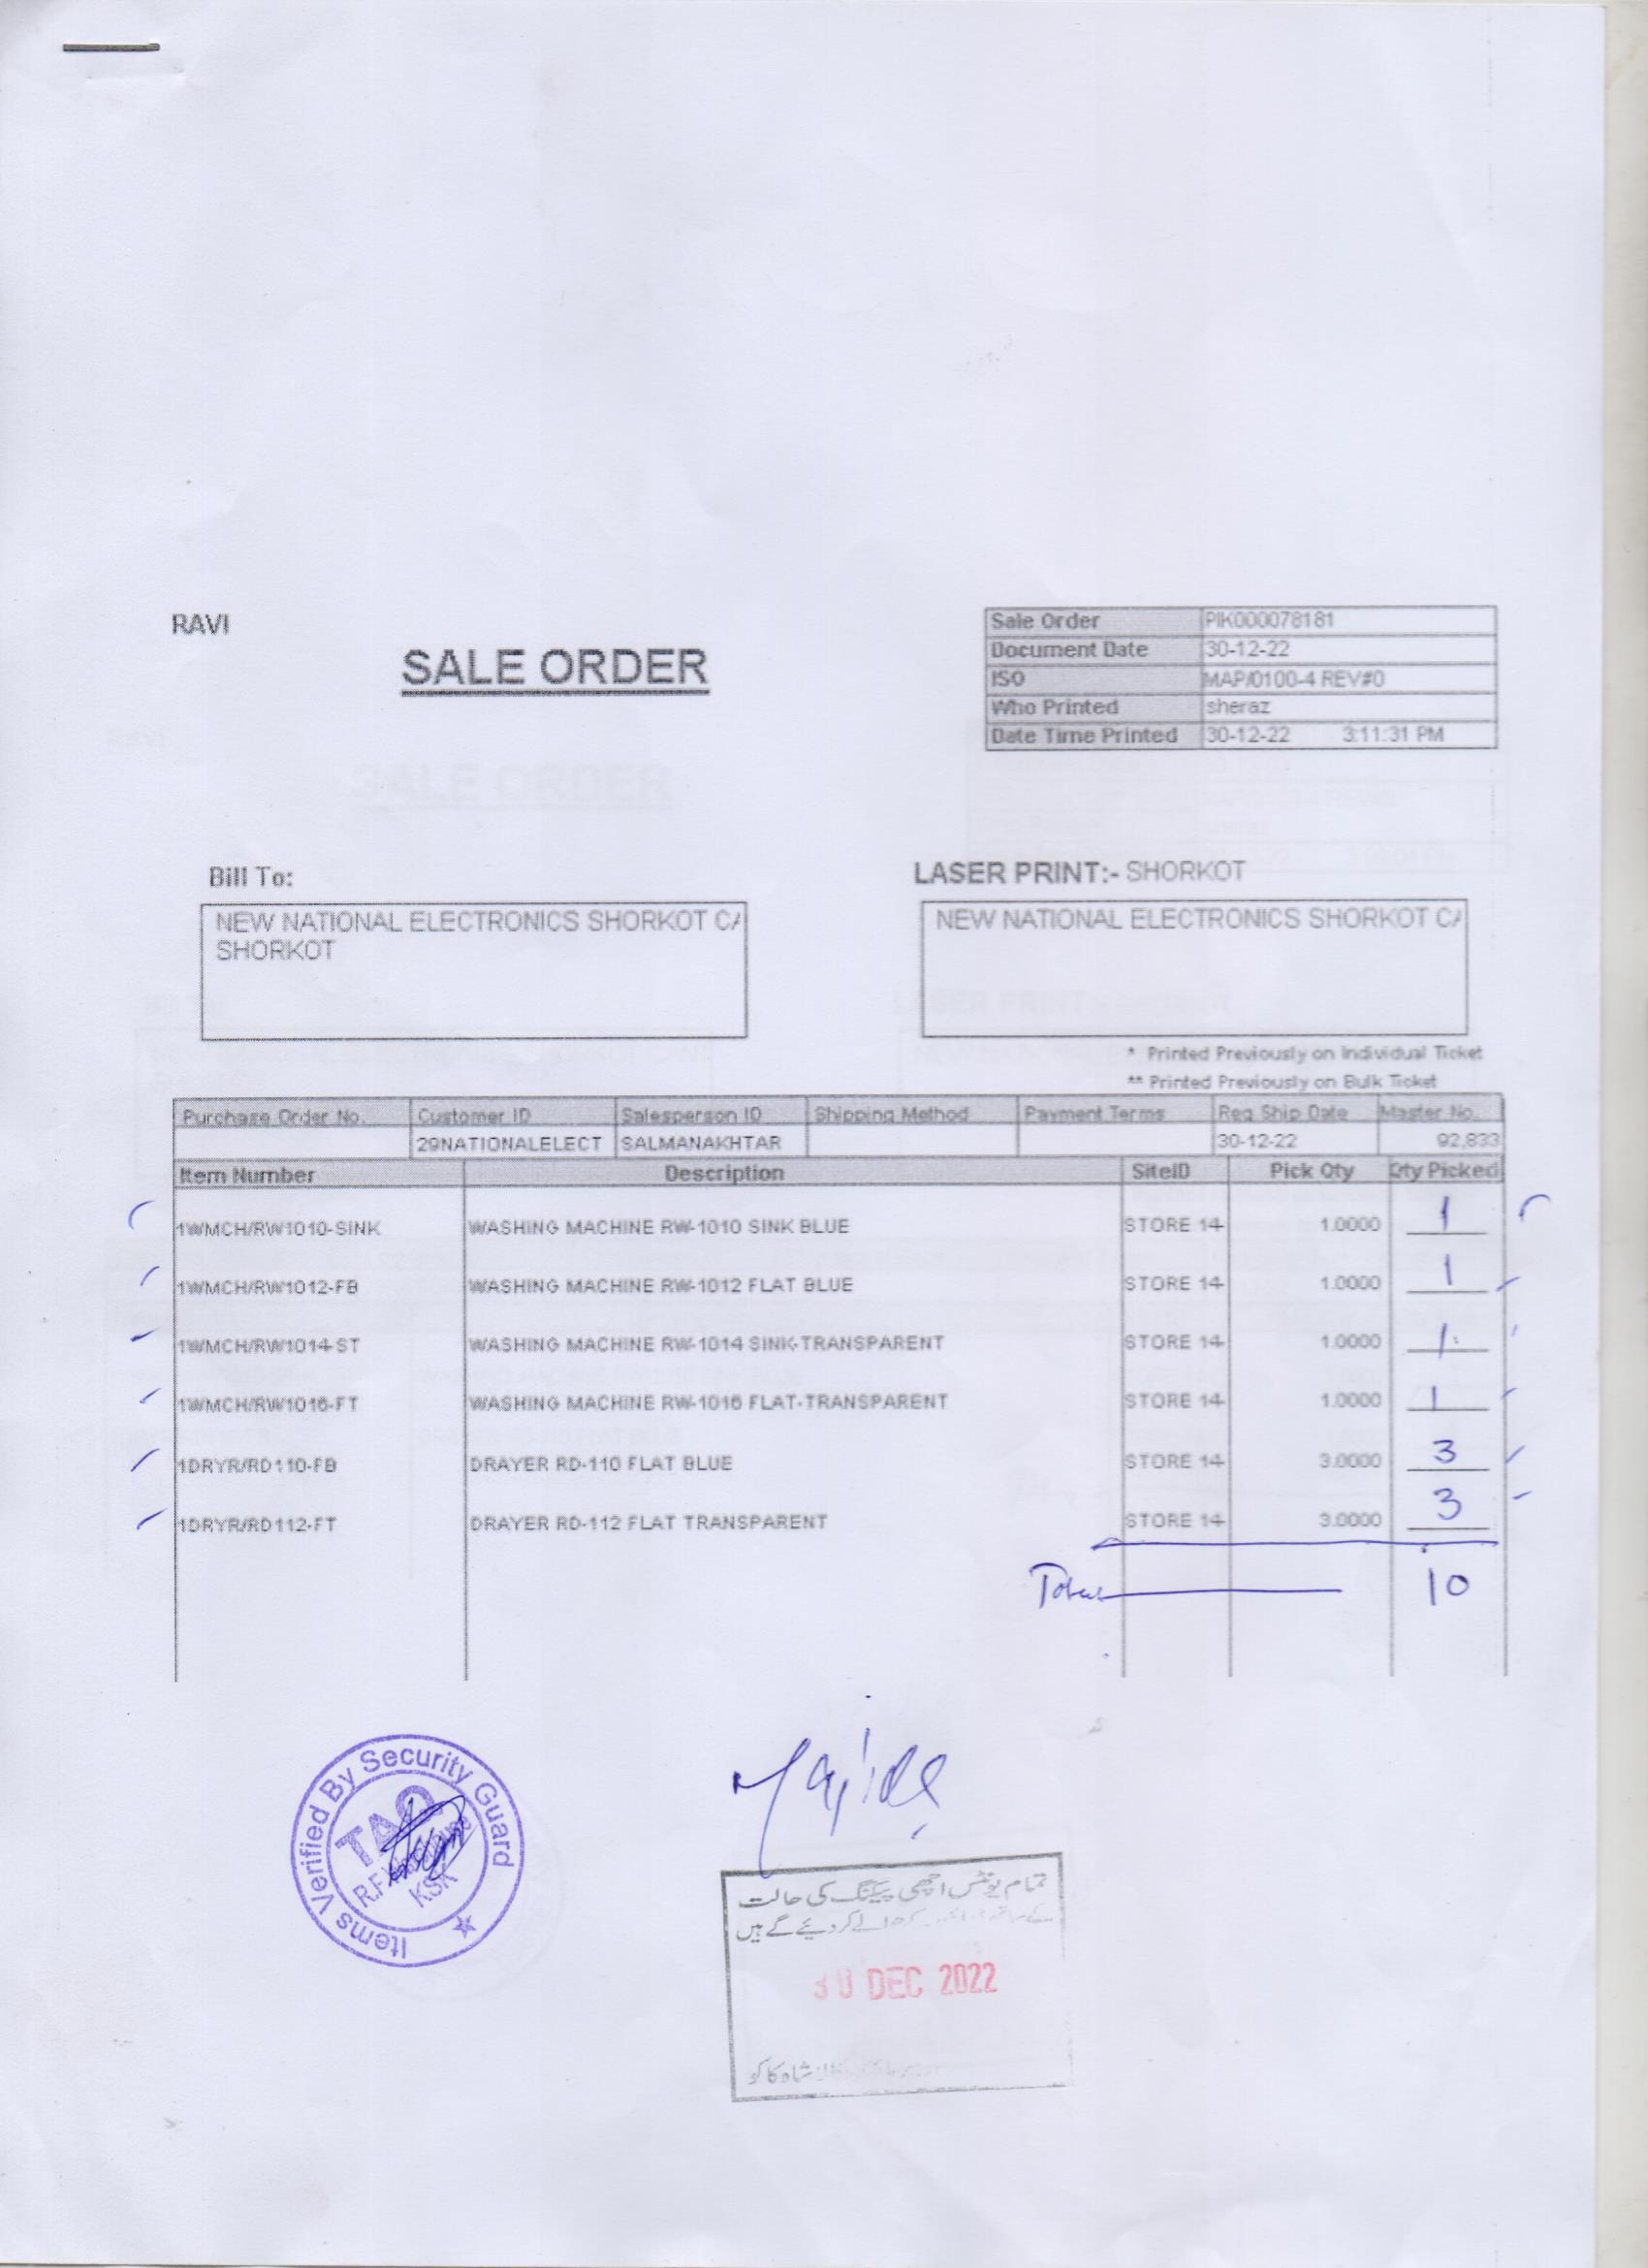 RAVI
SALE ORDER
Sale Order PIK000078181
Document Date 30-12-22
ISO MAP/0100-4 REV#0
Who Printed sheraz
Date Time Printed 30-12-22 3:11:31 PM
Bill To:
NEW NATIONAL ELECTRONICS SHORKOT CA
SHORKOT
LASER PRINT:- SHORKOT
NEW NATIONAL ELECTRONICS SHORKOT CA
* Printed Previously on Individual Ticket
** Printed Previously on Bulk Ticket
Purchase Order No. Customer ID Salesperson ID Shipping Method Payment Terms Req Ship Date Master No.
29NATIONALELECT SALMANAKHTAR 30-12-22 92,833
Item Number Description SiteID Pick Qty Qty Picked
1WMCH/RW1010-SINK WASHING MACHINE RW-1010 SINK BLUE STORE 14 1.0000 1
1WMCH/RW1012-FB WASHING MACHINE RW-1012 FLAT BLUE STORE 14 1.0000 1
1WMCH/RW1014-ST WASHING MACHINE RW-1014 SINK-TRANSPARENT STORE 14 1.0000 1
1WMCH/RW1016-FT WASHING MACHINE RW-1016 FLAT-TRANSPARENT STORE 14 1.0000 1
1DRYR/RD110-FB DRAYER RD-110 FLAT BLUE STORE 14 3.0000 3
1DRYR/RD112-FT DRAYER RD-112 FLAT TRANSPARENT STORE 14 3.0000 3
Total 10
Items Verified By Security Guard
R.F. Warehouse
KSK
تمام یونٹس اچھی پیکنگ کی حالت
کے ساتھ حوالے کر دئیے گے ہیں
30 DEC 2022
شاہ کاکو